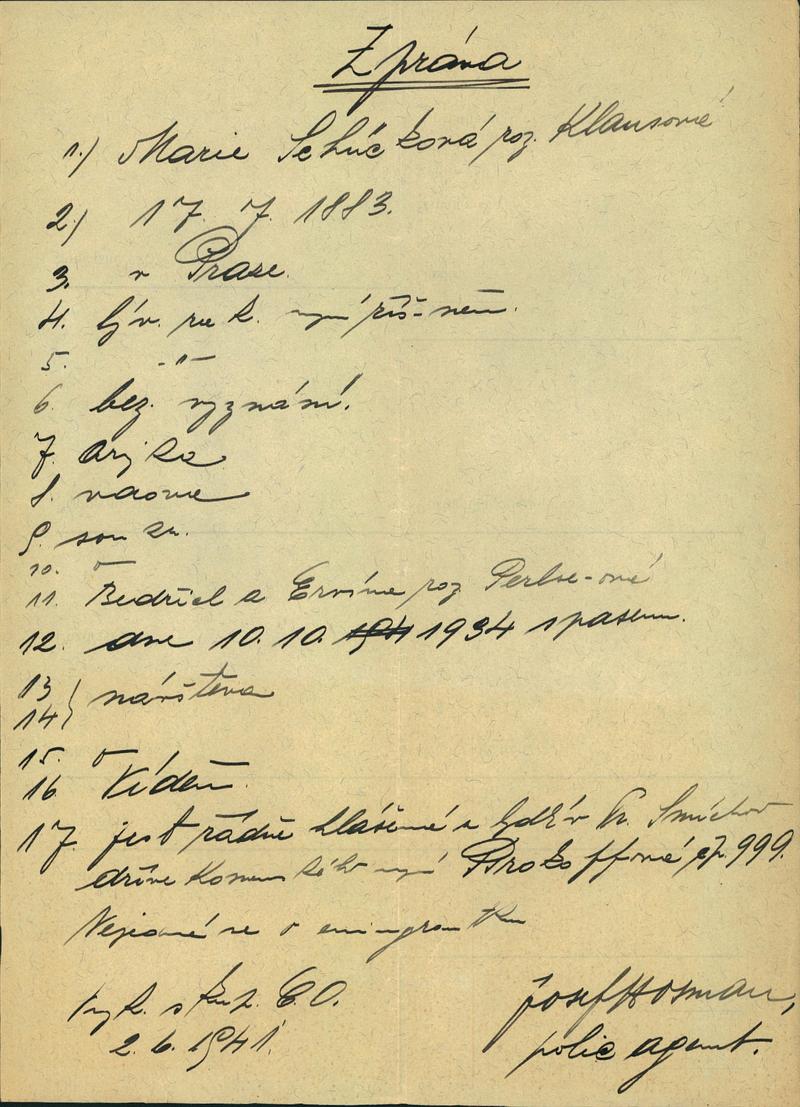 Zpráva
1.) Marie Schúčková roz. Klausová
2.) 17. 7. 1883.
3. v Praze.
4. býv. rak. nyní říš-něm.
5. -"-
6. bez vyznání.
7. arijka
8. vdova
9. souкr.
10. 0
11. Bedřich a Ervína roz Perlse-ové
12. dne 10. 10. 1934 s pasem.
13 } návštěva
14
15. 0
16 Vídeň.
17. jest řádně hlášena a bydlí v Pr. Smíchov
dříve Komenského nyní Brokoffova čp. 999.
Nejedná se o emigrantku
2. 6. 1941.
Josef Hosman,
polic agent.